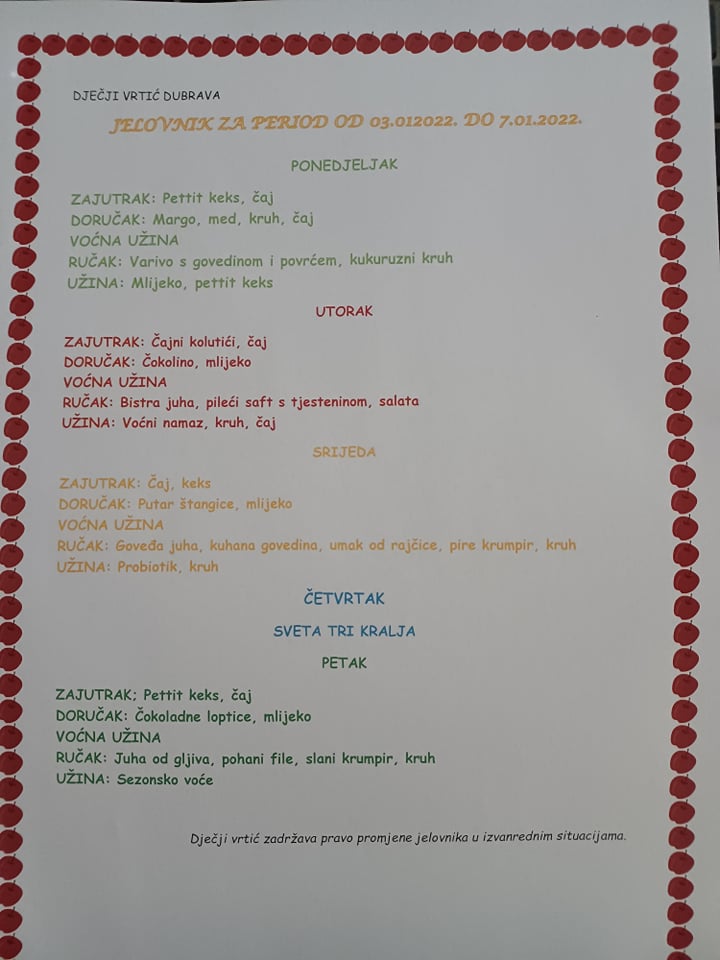 DJEČJI VRTIĆ DUBRAVA
JELOVNIK ZA PERIOD OD 03.012022. DO 7.01.2022.
PONEDJELJAK
ZAJUTRAK: Pettit keks, čaj
DORUČAK: Margo, med, kruh, čaj
VOĆNA UŽINA
RUČAK: Varivo s govedinom i povrćem, kukuruzni kruh
UŽINA: Mlijeko, pettit keks
UTORAK
ZAJUTRAK: Čajni kolutići, čaj
DORUČAK: Čokolino, mlijeko
VOĆNA UŽINA
RUČAK: Bistra juha, pileći saft s tjesteninom, salata
UŽINA: Voćni namaz, kruh, čaj
SRIJEDA
ZAJUTRAK: Čaj, keks
DORUČAK: Putar štangice, mlijeko
VOĆNA UŽINA
RUČAK: Goveđa juha, kuhana govedina, umak od rajčice, pire krumpir, kruh
UŽINA: Probiotik, kruh
ČETVRTAK
SVETA TRI KRALJA
PETAK
ZAJUTRAK; Pettit keks, čaj
DORUČAK: Čokoladne loptice, mlijeko
VOĆNA UŽINA
RUČAK: Juha od gljiva, pohani file, slani krumpir, kruh
UŽINA: Sezonsko voće
Dječji vrtić zadržava pravo promjene jelovnika u izvanrednim situacijama.